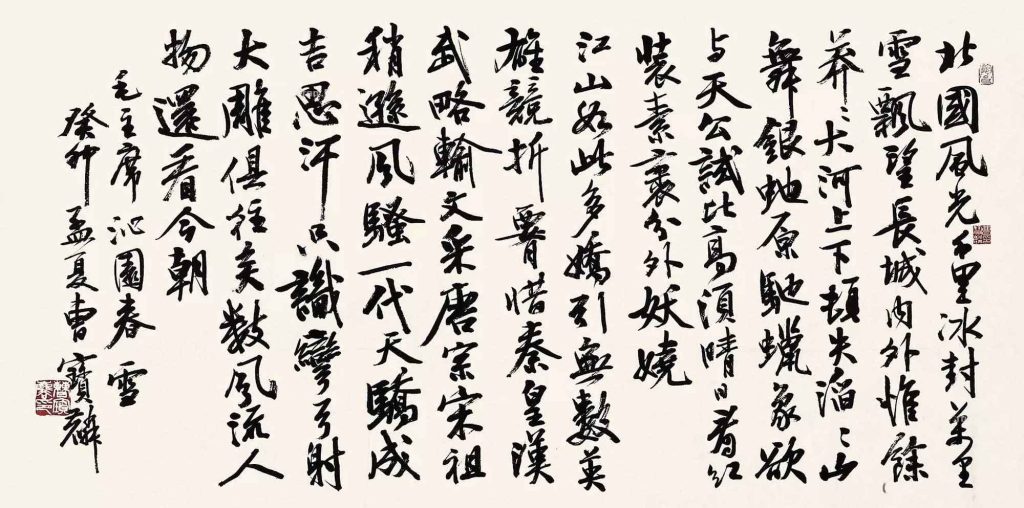 北國風光千里冰封萬里
雪飄望長城內外惟餘
莽〻大河上下頓失滔〻山
舞銀蛇原馳蠟象欲
与天公試比高須晴日看紅
裝素裹分外妖嬈
江山如此多嬌引無數英
雄競折腰惜秦皇漢
武略輸文采唐宗宋祖
稍遜風騷一代天驕成
吉思汗只識彎弓射
大雕俱往矣數風流人
物還看今朝
毛主席沁園春 雪
癸卯孟夏曹寶麟